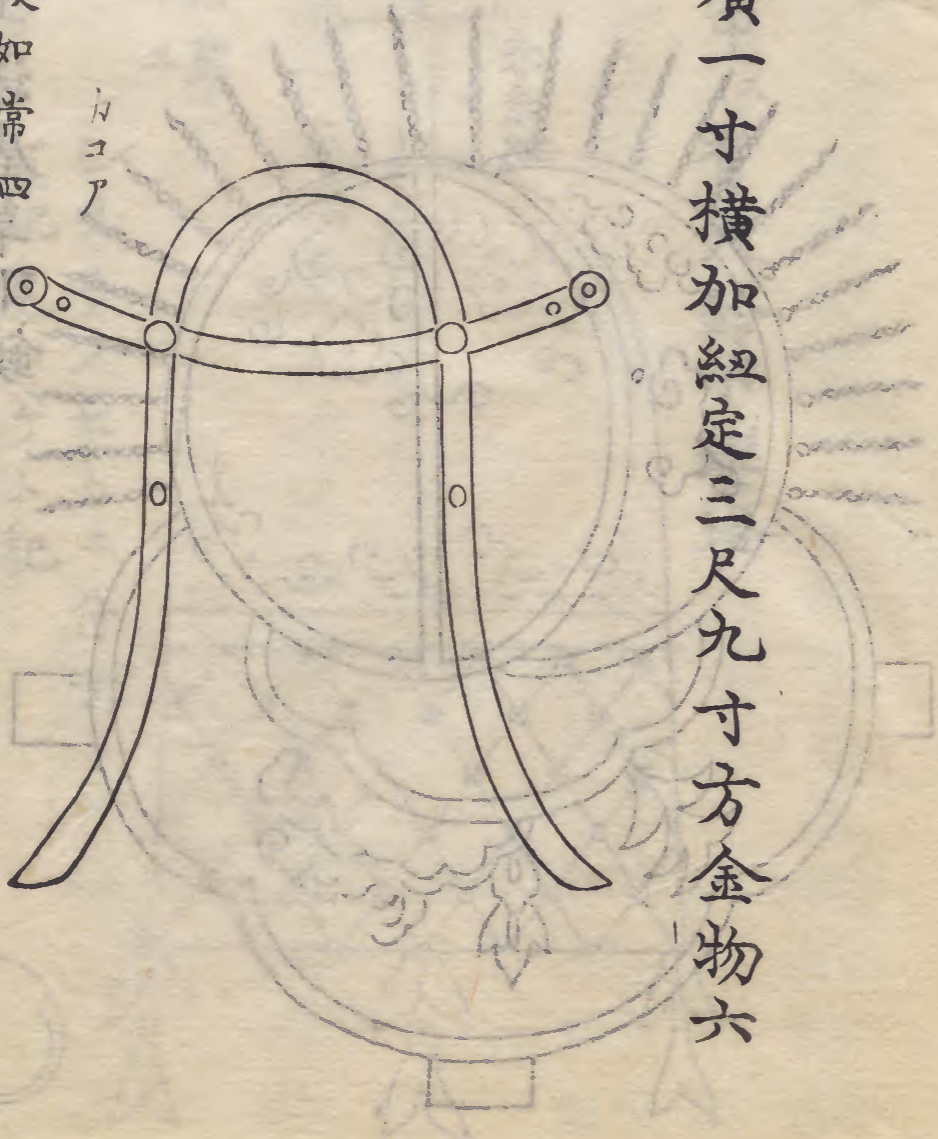 一寸横加紐定三尺九寸方金物六
カコア
如常四